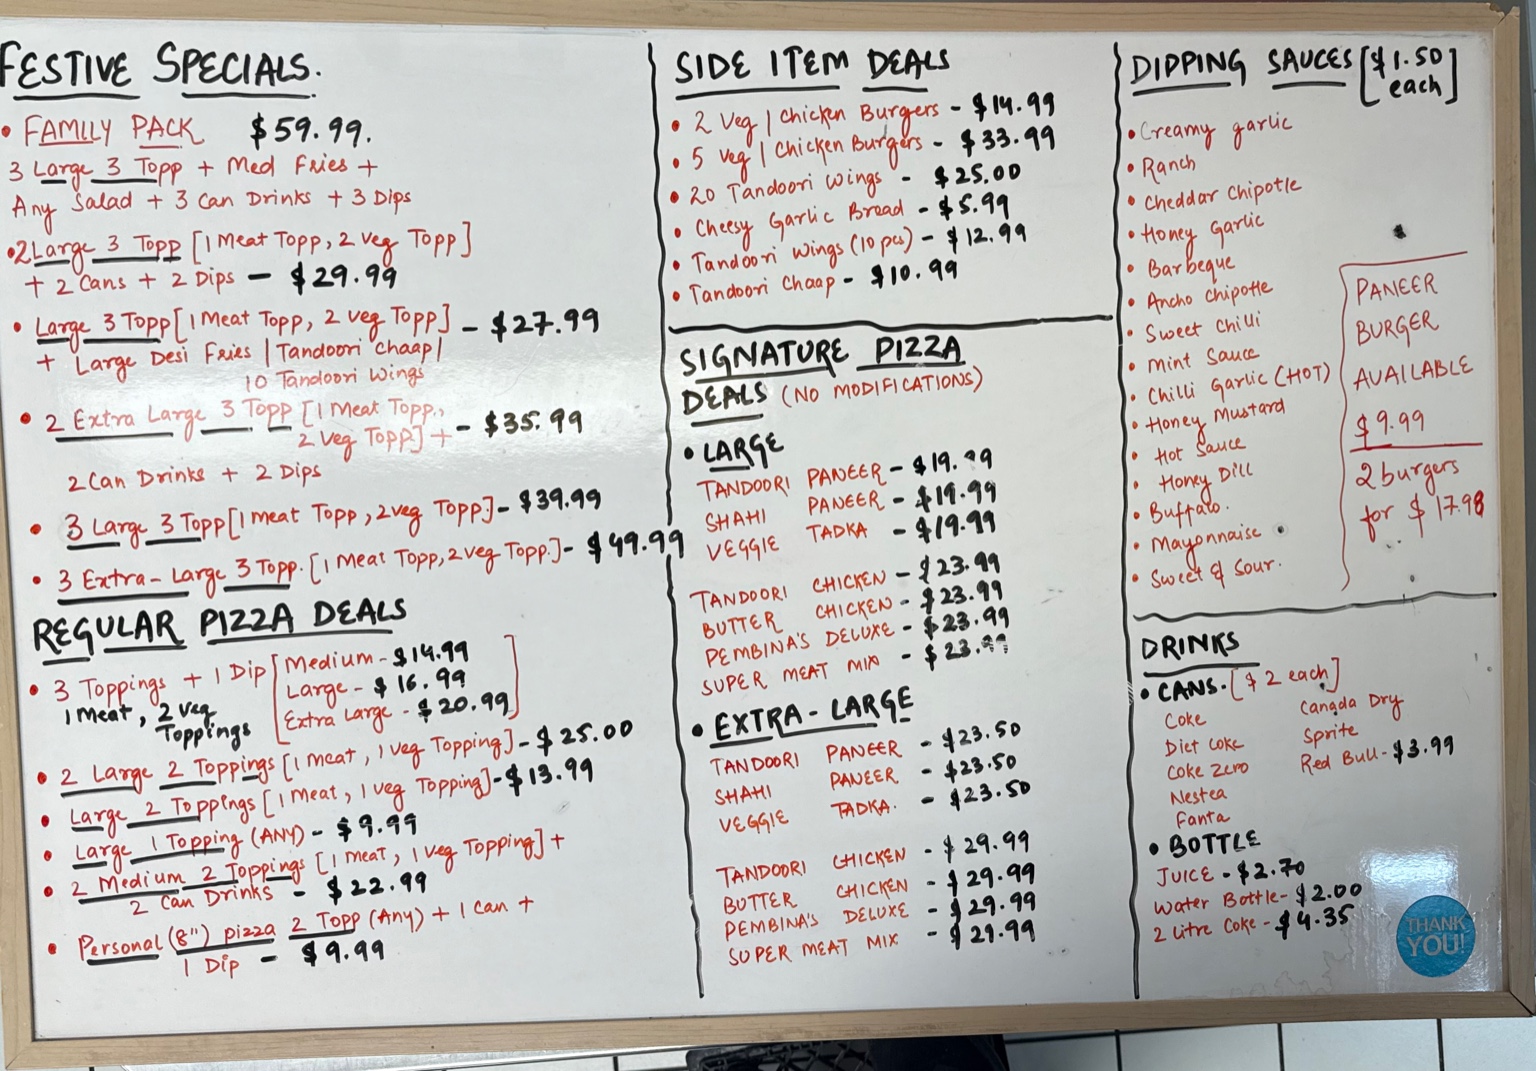 FESTIVE SPECIALS.
• FAMILY PACK $59.99.
3 Large 3 Topp + Med Fries +
Any Salad + 3 Can Drinks + 3 Dips
• 2 Large 3 Topp [1 Meat Topp, 2 Veg Topp]
+ 2 Cans + 2 Dips — $29.99
• Large 3 Topp [1 Meat Topp, 2 Veg Topp] – $27.99
+ Large Desi Fries | Tandoori Chaap |
10 Tandoori Wings
• 2 Extra Large 3 Topp [1 Meat Topp.,
2 Veg Topp.] + – $35.99
2 Can Drinks + 2 Dips
• 3 Large 3 Topp [1 Meat Topp, 2 Veg Topp.] – $39.99
• 3 Extra-Large 3 Topp. [1 Meat Topp, 2 Veg Topp.] – $49.99
REGULAR PIZZA DEALS
• 3 Toppings + 1 Dip [Medium – $14.99
Large – $16.99
Extra Large – $20.99]
1 Meat, 2 Veg
Toppings
• 2 Large 2 Toppings [1 Meat, 1 Veg Topping] – $25.00
• Large 2 Toppings [1 Meat, 1 Veg Topping] – $13.99
• Large 1 Topping (ANY) – $9.99
• 2 Medium 2 Toppings [1 Meat, 1 Veg Topping] +
2 Can Drinks – $22.99
• Personal (8") pizza 2 Topp (Any) + 1 Can +
1 Dip – $9.99
SIDE ITEM DEALS
• 2 Veg | Chicken Burgers – $14.99
• 5 Veg | Chicken Burgers – $33.99
• 20 Tandoori Wings – $25.00
• Cheesy Garlic Bread – $5.99
• Tandoori Wings (10 pcs) – $12.99
• Tandoori Chaap – $10.99
SIGNATURE PIZZA
DEALS (NO MODIFICATIONS)
• LARGE
TANDOORI PANEER – $19.99
SHAHI PANEER – $19.99
VEGGIE TADKA – $19.99
TANDOORI CHICKEN – $23.99
BUTTER CHICKEN – $23.99
PEMBINA'S DELUXE – $23.99
SUPER MEAT MIX – $23.99
• EXTRA-LARGE
TANDOORI PANEER – $23.50
SHAHI PANEER – $23.50
VEGGIE TADKA. – $23.50
TANDOORI CHICKEN – $29.99
BUTTER CHICKEN – $29.99
PEMBINA'S DELUXE – $29.99
SUPER MEAT MIX – $29.99
DIPPING SAUCES [$1.50
each]
• Creamy garlic
• Ranch
• Cheddar Chipotle
• Honey Garlic
• Barbeque
• Ancho Chipotle
• Sweet Chilli
• Mint Sauce
• Chilli Garlic (HOT)
• Honey Mustard
• Hot Sauce
• Honey Dill
• Buffalo.
• Mayonnaise
• Sweet & Sour.
PANEER
BURGER
AVAILABLE
$9.99
2 burgers
for $17.98
DRINKS
• CANS. [$2 each]
Coke
Diet Coke
Coke Zero
Nestea
Fanta
Canada Dry
Sprite
Red Bull – $3.99
• BOTTLE
JUICE – $2.70
Water Bottle – $2.00
2 Litre Coke – $4.35
THANK
YOU!